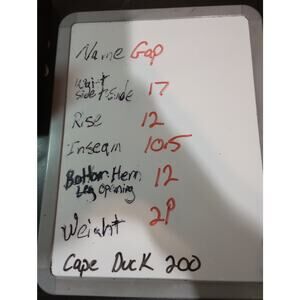 Name Gap
Waist
side to side 17
Rise 12
Inseam 10.5
Bottom Hem 12
Leg Opening
Weight 2P
Cape Duck 200